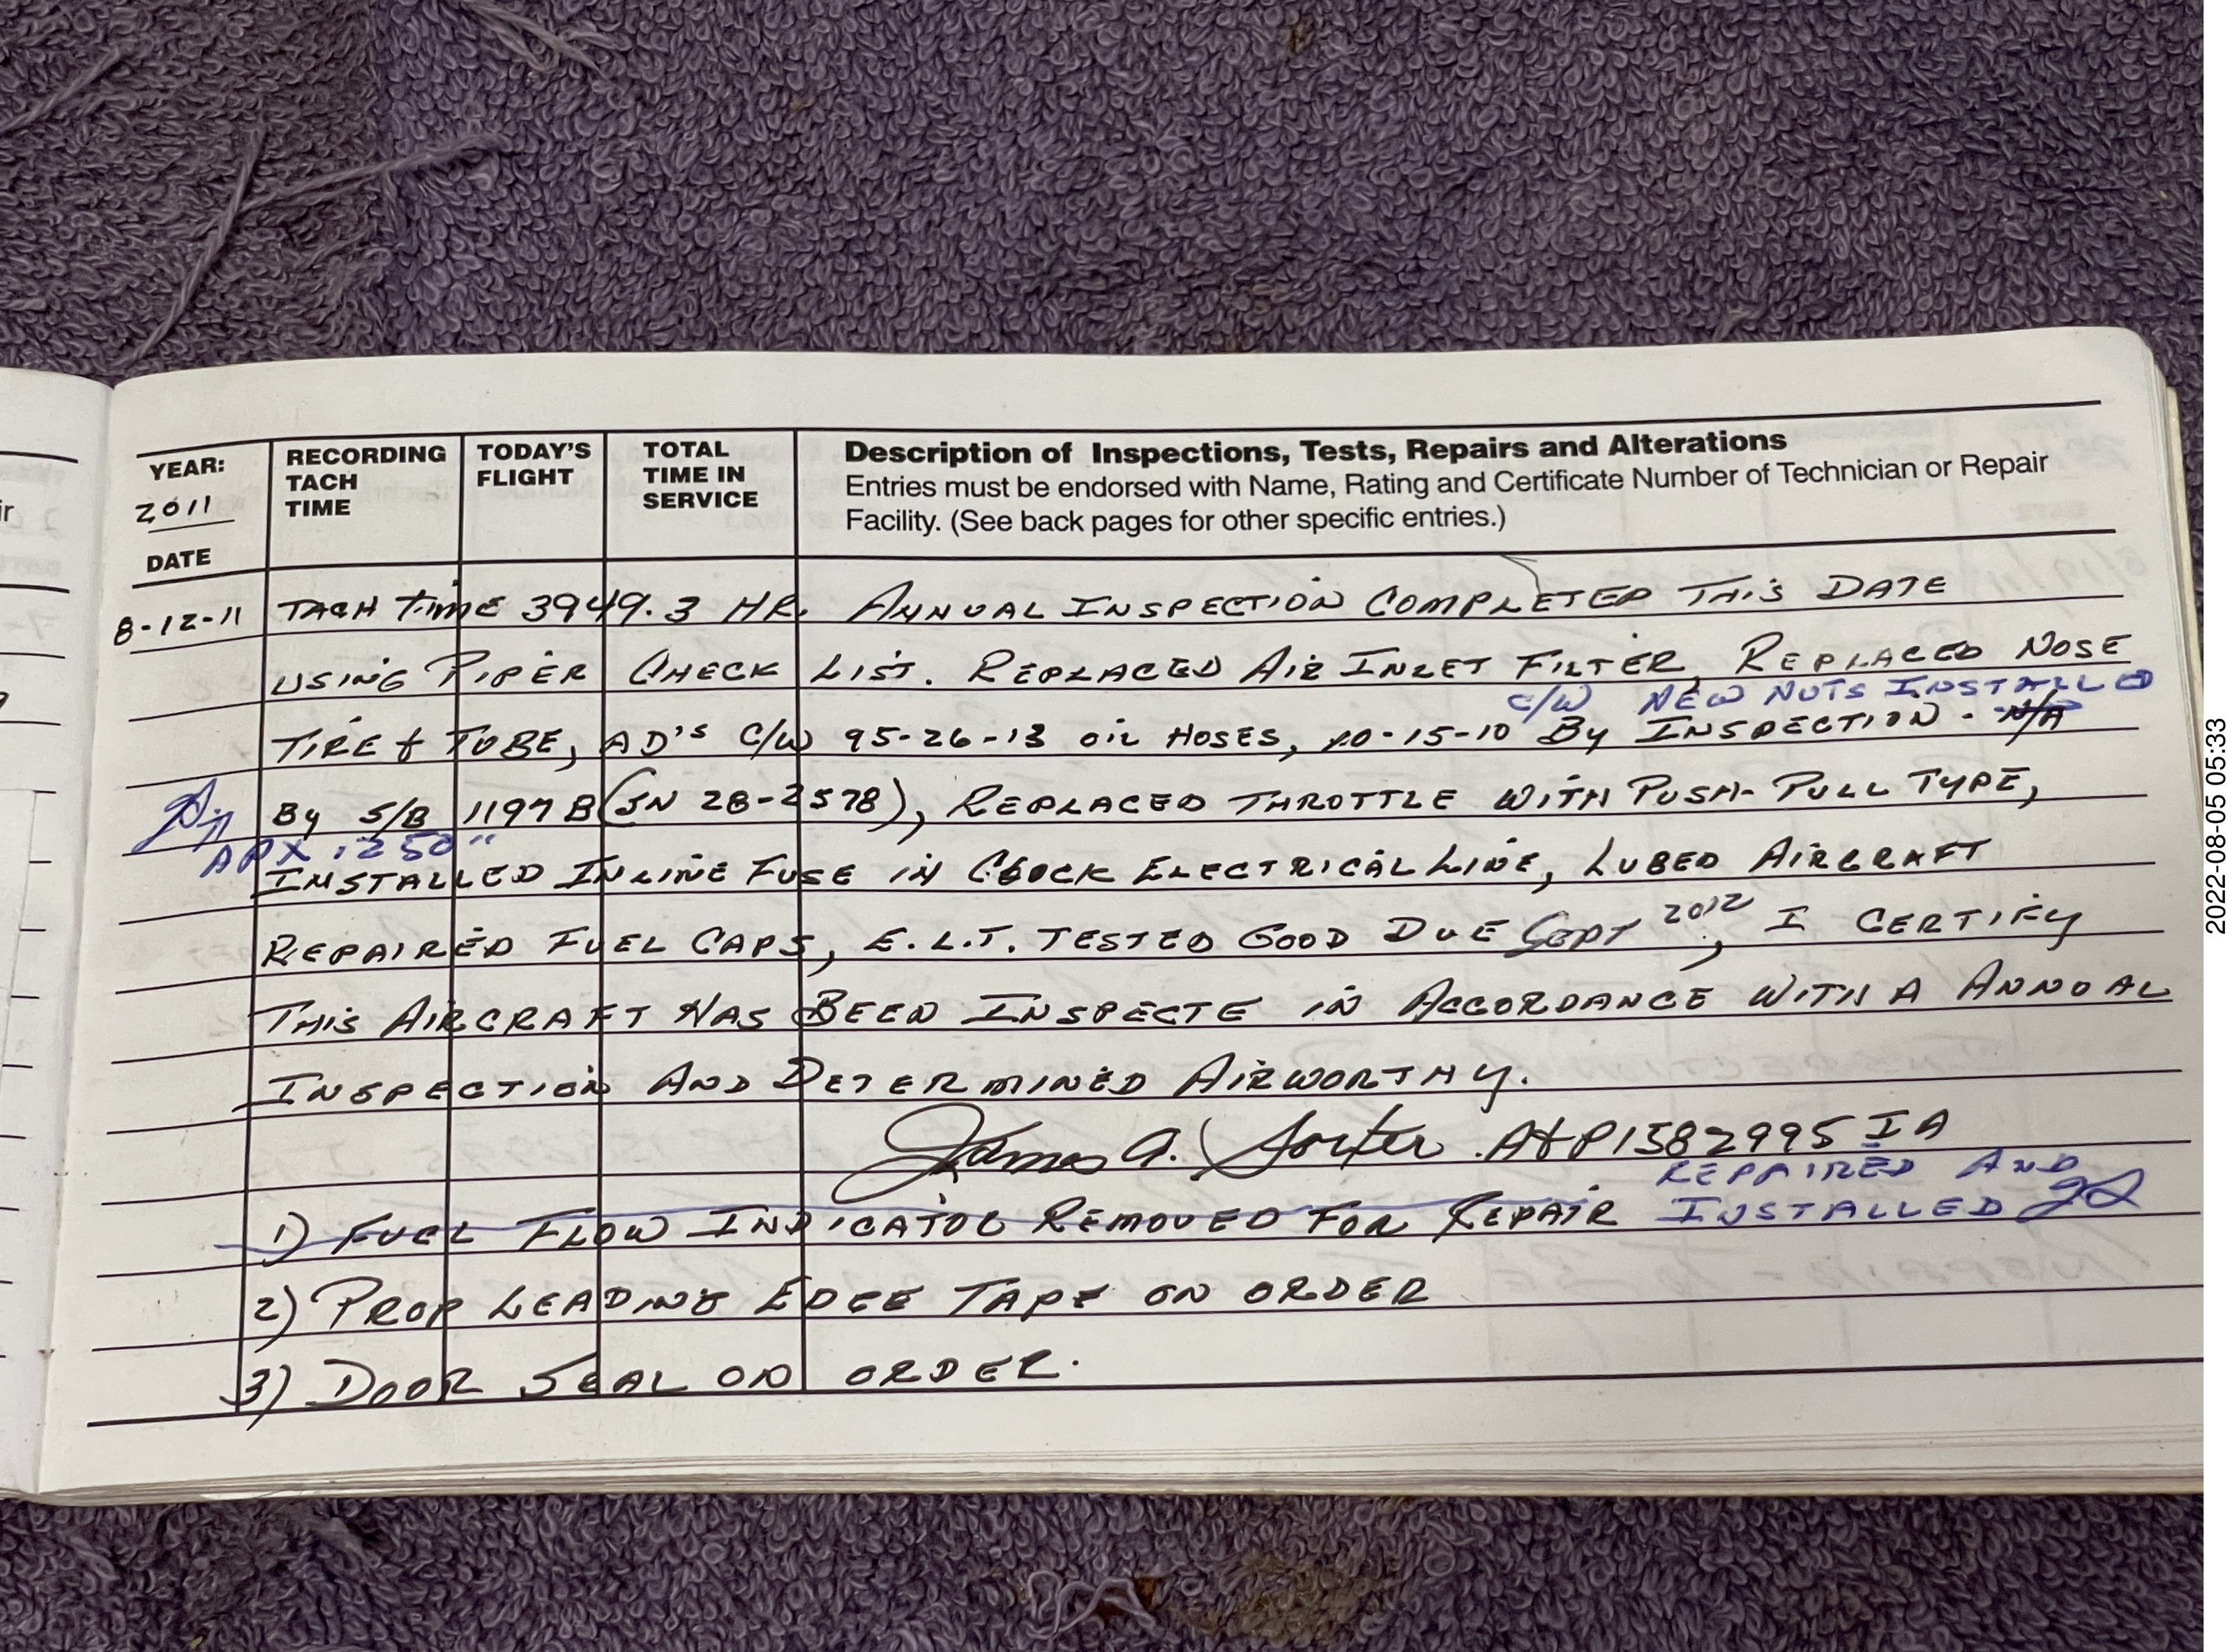 YEAR:
2011
DATE
RECORDING
TACH
TIME
TODAY'S
FLIGHT
TOTAL
TIME IN
SERVICE
Description of Inspections, Tests, Repairs and Alterations
Entries must be endorsed with Name, Rating and Certificate Number of Technician or Repair
Facility. (See back pages for other specific entries.)
8-12-11 TACH TIME 3949.3 HR. ANNUAL INSPECTION COMPLETED THIS DATE
USING PIPER CHECK LIST. REPLACED AIR INLET FILTER, REPLACED NOSE
C/W NEW NUTS INSTALLED
TIRE & TUBE, AD'S C/W 95-26-13 OIL HOSES, 10-15-10 By INSPECTION - N/A
By S/B 1197B (SN 28-2578), REPLACED THROTTLE WITH PUSH-PULL TYPE,
APX .250"
INSTALLED INLINE FUSE IN CLOCK ELECTRICAL LINE, LUBED AIRCRAFT
REPAIRED FUEL CAPS, E.L.T. TESTED GOOD DUE SEPT 2012, I CERTIFY
THIS AIRCRAFT HAS BEEN INSPECTE IN ACCORDANCE WITH A ANNUAL
INSPECTION AND DETERMINED AIRWORTHY.
James A. Sorter A&P1582995 IA
REPAIRED AND
1) FUEL FLOW INDICATOR REMOVED FOR REPAIR INSTALLED
2) PROP LEADING EDGE TAPE ON ORDER
3) DOOR SEAL ON ORDER.
2022-08-05 05:33